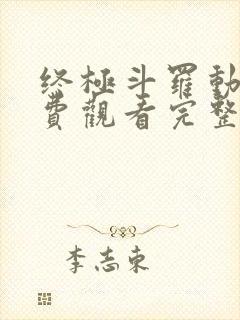 终極斗羅動
費觀看完整
李志東